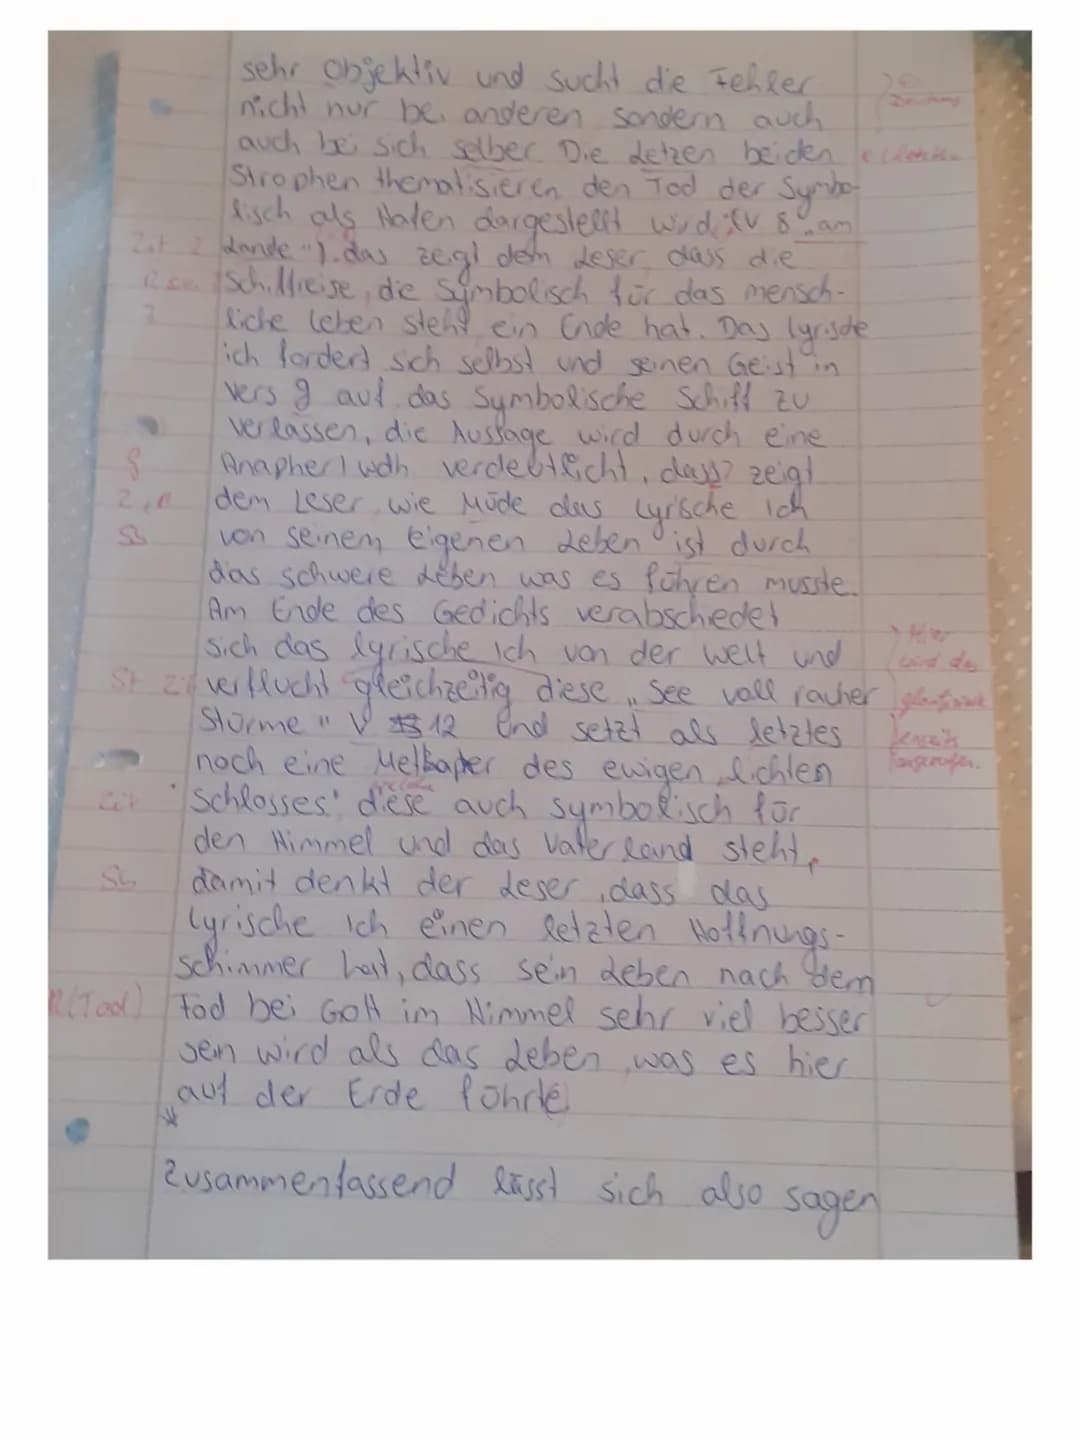 sehr objektiv und sucht die Fehler
nicht nur bei anderen sondern auch
auch bei sich selber. Die Letzen beiden
Strophen thematisieren den Tod der Symbo-
lisch als Hafen dargestellt wird (V 8 „am
Zit Z Lande"). das zeigt dem Leser, dass die
R Schiffreise, die Symbolisch für das mensch-
? liche leben steht ein Ende hat. Das lyrische
ich fordert sich selbst und seinen Geist in
Vers 9 auf das Symbolische Schiff zu
verlassen, die Aussage wird durch eine
Anapher/wdh verdeutlicht, dass? zeigt
Z, R dem Leser, wie Müde das Lyrische ich
Sb von seinem eigenen Leben ist durch
das schwere Leben was es führen musste.
Am Ende des Gedichts verabschiedet
sich das lyrische ich von der welt und
St Zit verflucht gleichzeitig diese „See voll racher
Stürme" V 12 und setzt als letztes
noch eine Methaper des ewigen lichten
Zit Schlosses' diese auch symbolisch für
den Himmel und das Vaterland steht,
Sb damit denkt der Leser, dass das
Lyrische Ich einen letzten Hoffnungs-
schimmer hat, dass sein Leben nach dem
R(Tod) Tod bei Gott im Himmel sehr viel besser
sein wird als das Leben, was es hier
auf der Erde führte.
*
Zusammenfassend lässt sich also sagen
Hier
wird das
Jenseits
angerufen.